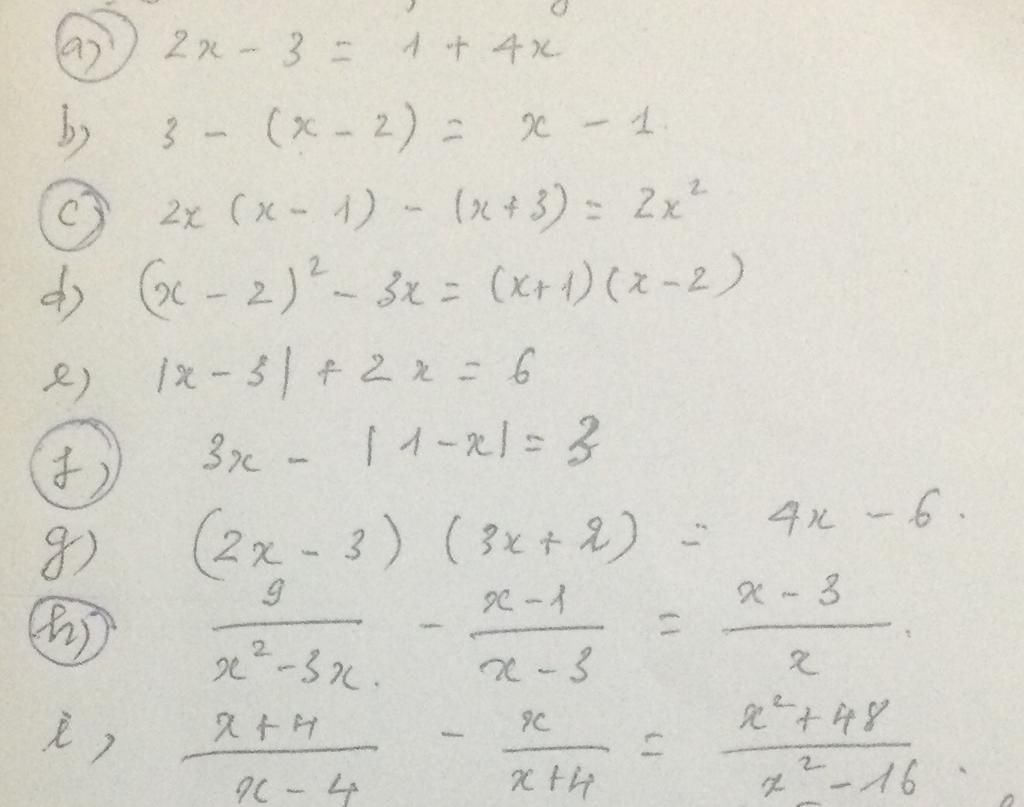 a) 2x - 3 = 1 + 4x
b) 3 - (x - 2) = x - 1.
c) 2x (x - 1) - (x + 3) = 2x²
d) (x - 2)² - 3x = (x+1)(x - 2)
e) |x - 3| + 2x = 6
f) 3x - |1 - x| = 3
g) (2x - 3) (3x + 2) = 4x - 6.
h) 9/(x² - 3x) - (x - 1)/(x - 3) = (x - 3)/x.
i, (x + 4)/(x - 4) - x/(x + 4) = (x² + 48)/(x² - 16).